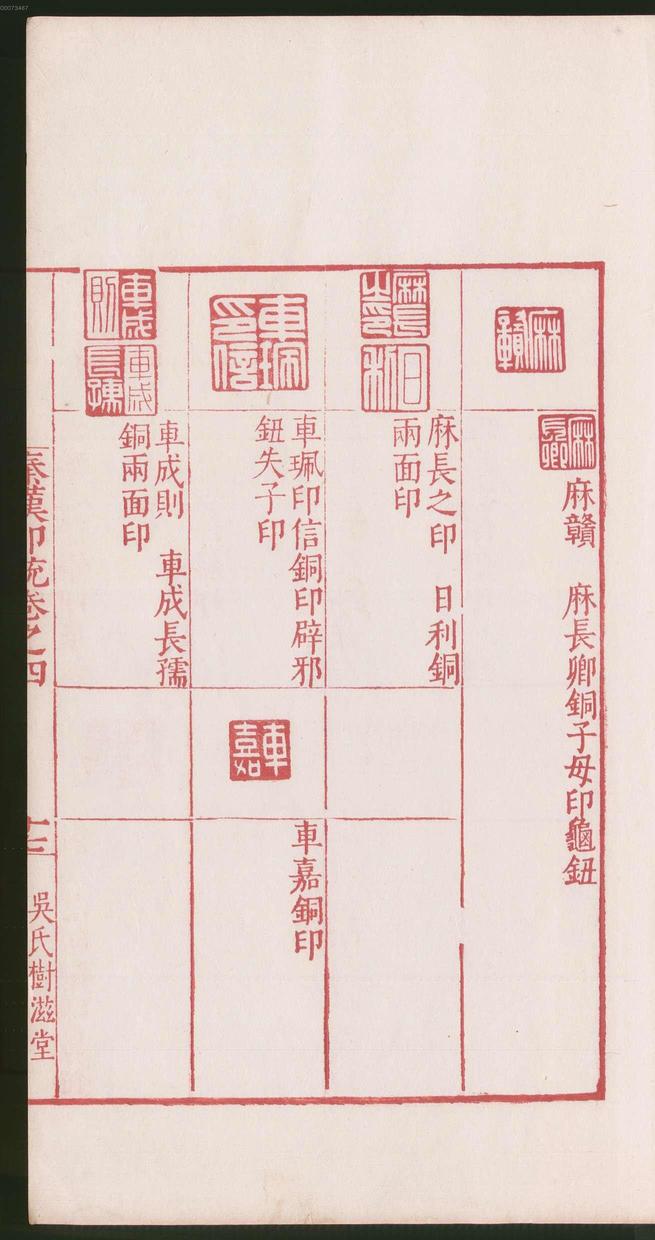 00073467
麻贛
麻長卿
麻贛　麻長卿銅子母印龜鈕
麻長之印
日利
麻長之印　日利銅
兩面印
車珮印信
車珮印信銅印辟邪
鈕失子印
車嘉
車嘉銅印
車成則
車成長孺
車成則　車成長孺
銅兩面印
秦漢印統卷之四
吳氏樹滋堂